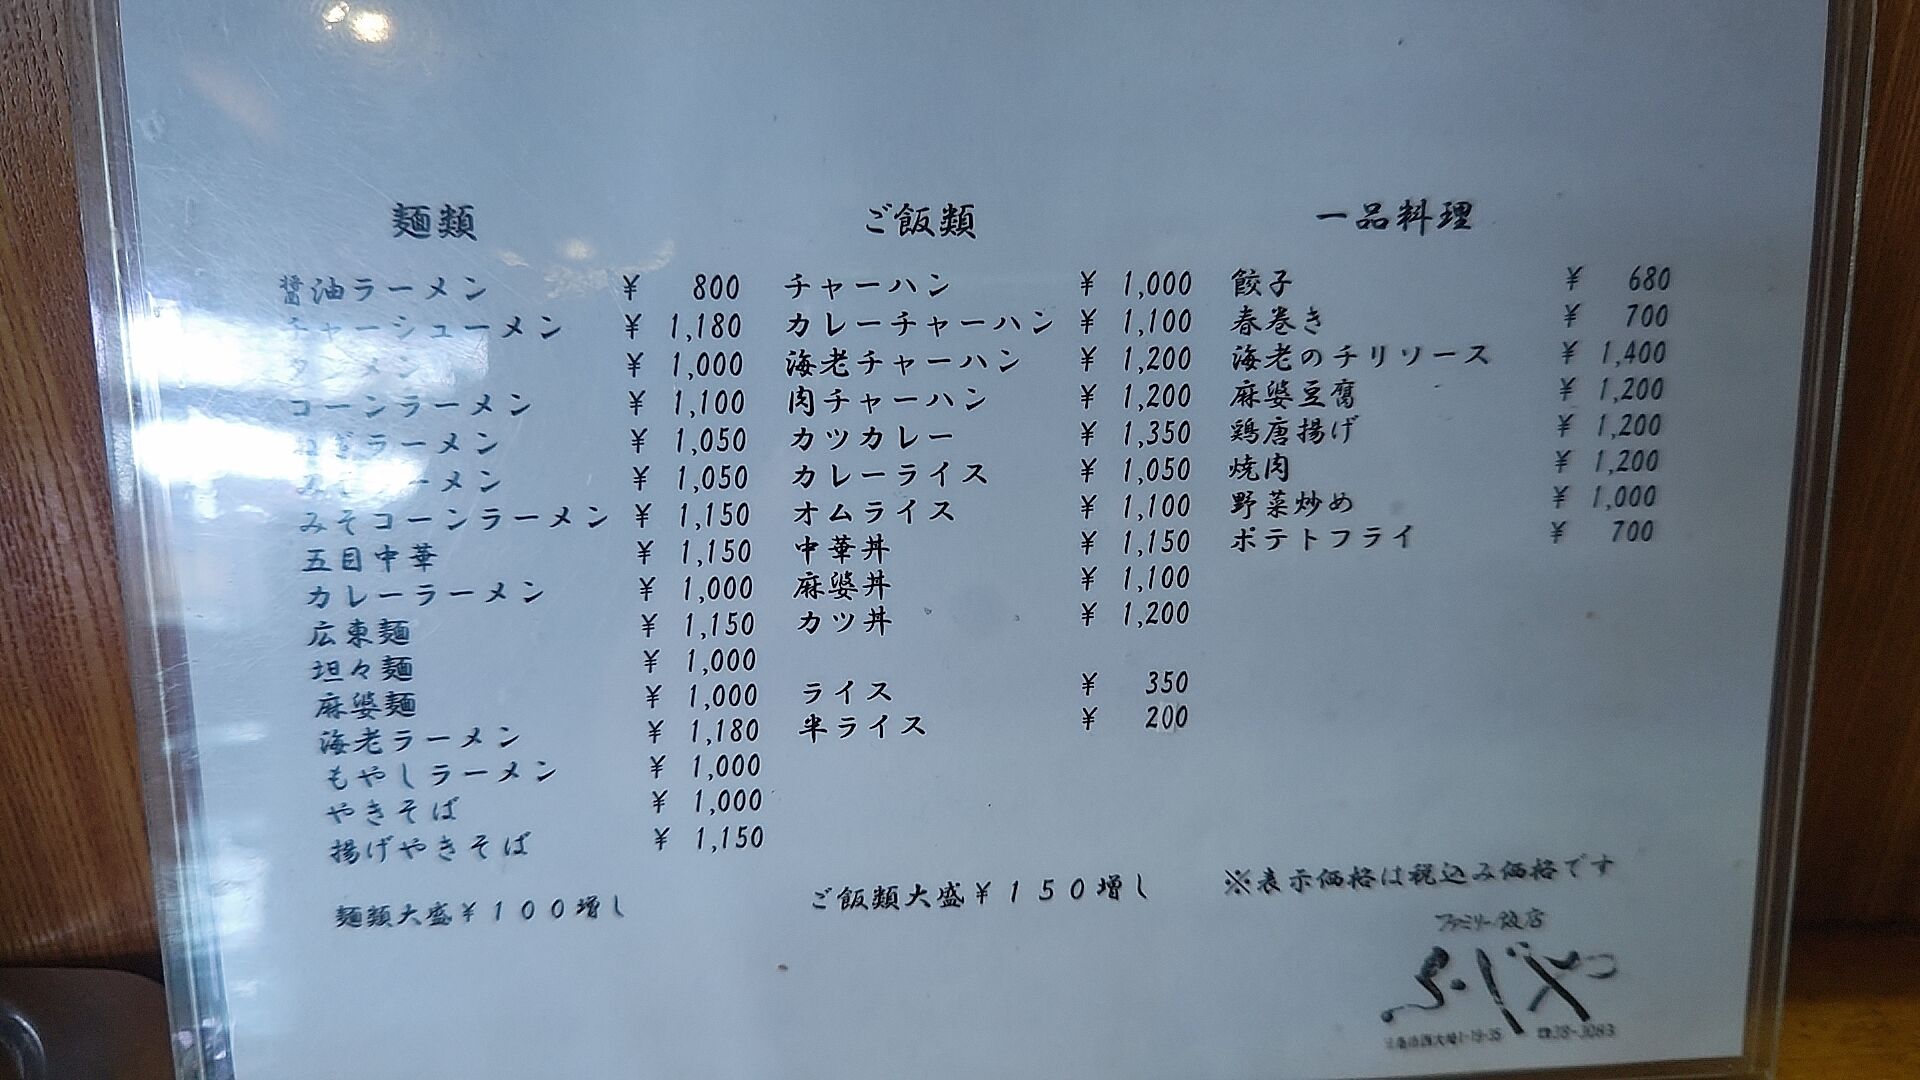 麺類
醤油ラーメン ¥ 800
チャーシューメン ¥ 1,180
タンメン ¥ 1,000
コーンラーメン ¥ 1,100
ねぎラーメン ¥ 1,050
みそラーメン ¥ 1,050
みそコーンラーメン ¥ 1,150
五目中華 ¥ 1,150
カレーラーメン ¥ 1,000
広東麺 ¥ 1,150
坦々麺 ¥ 1,000
麻婆麺 ¥ 1,000
海老ラーメン ¥ 1,180
もやしラーメン ¥ 1,000
やきそば ¥ 1,000
揚げやきそば ¥ 1,150
麺類大盛¥100増し
ご飯類
チャーハン ¥ 1,000
カレーチャーハン ¥ 1,100
海老チャーハン ¥ 1,200
肉チャーハン ¥ 1,200
カツカレー ¥ 1,350
カレーライス ¥ 1,050
オムライス ¥ 1,100
中華丼 ¥ 1,150
麻婆丼 ¥ 1,100
カツ丼 ¥ 1,200
ライス ¥ 350
半ライス ¥ 200
ご飯類大盛¥150増し
一品料理
餃子 ¥ 680
春巻き ¥ 700
海老のチリソース ¥ 1,400
麻婆豆腐 ¥ 1,200
鶏唐揚げ ¥ 1,200
焼肉 ¥ 1,200
野菜炒め ¥ 1,000
ポテトフライ ¥ 700
※表示価格は税込み価格です
ファミリー飯店
1-19-35 ☎38-3083